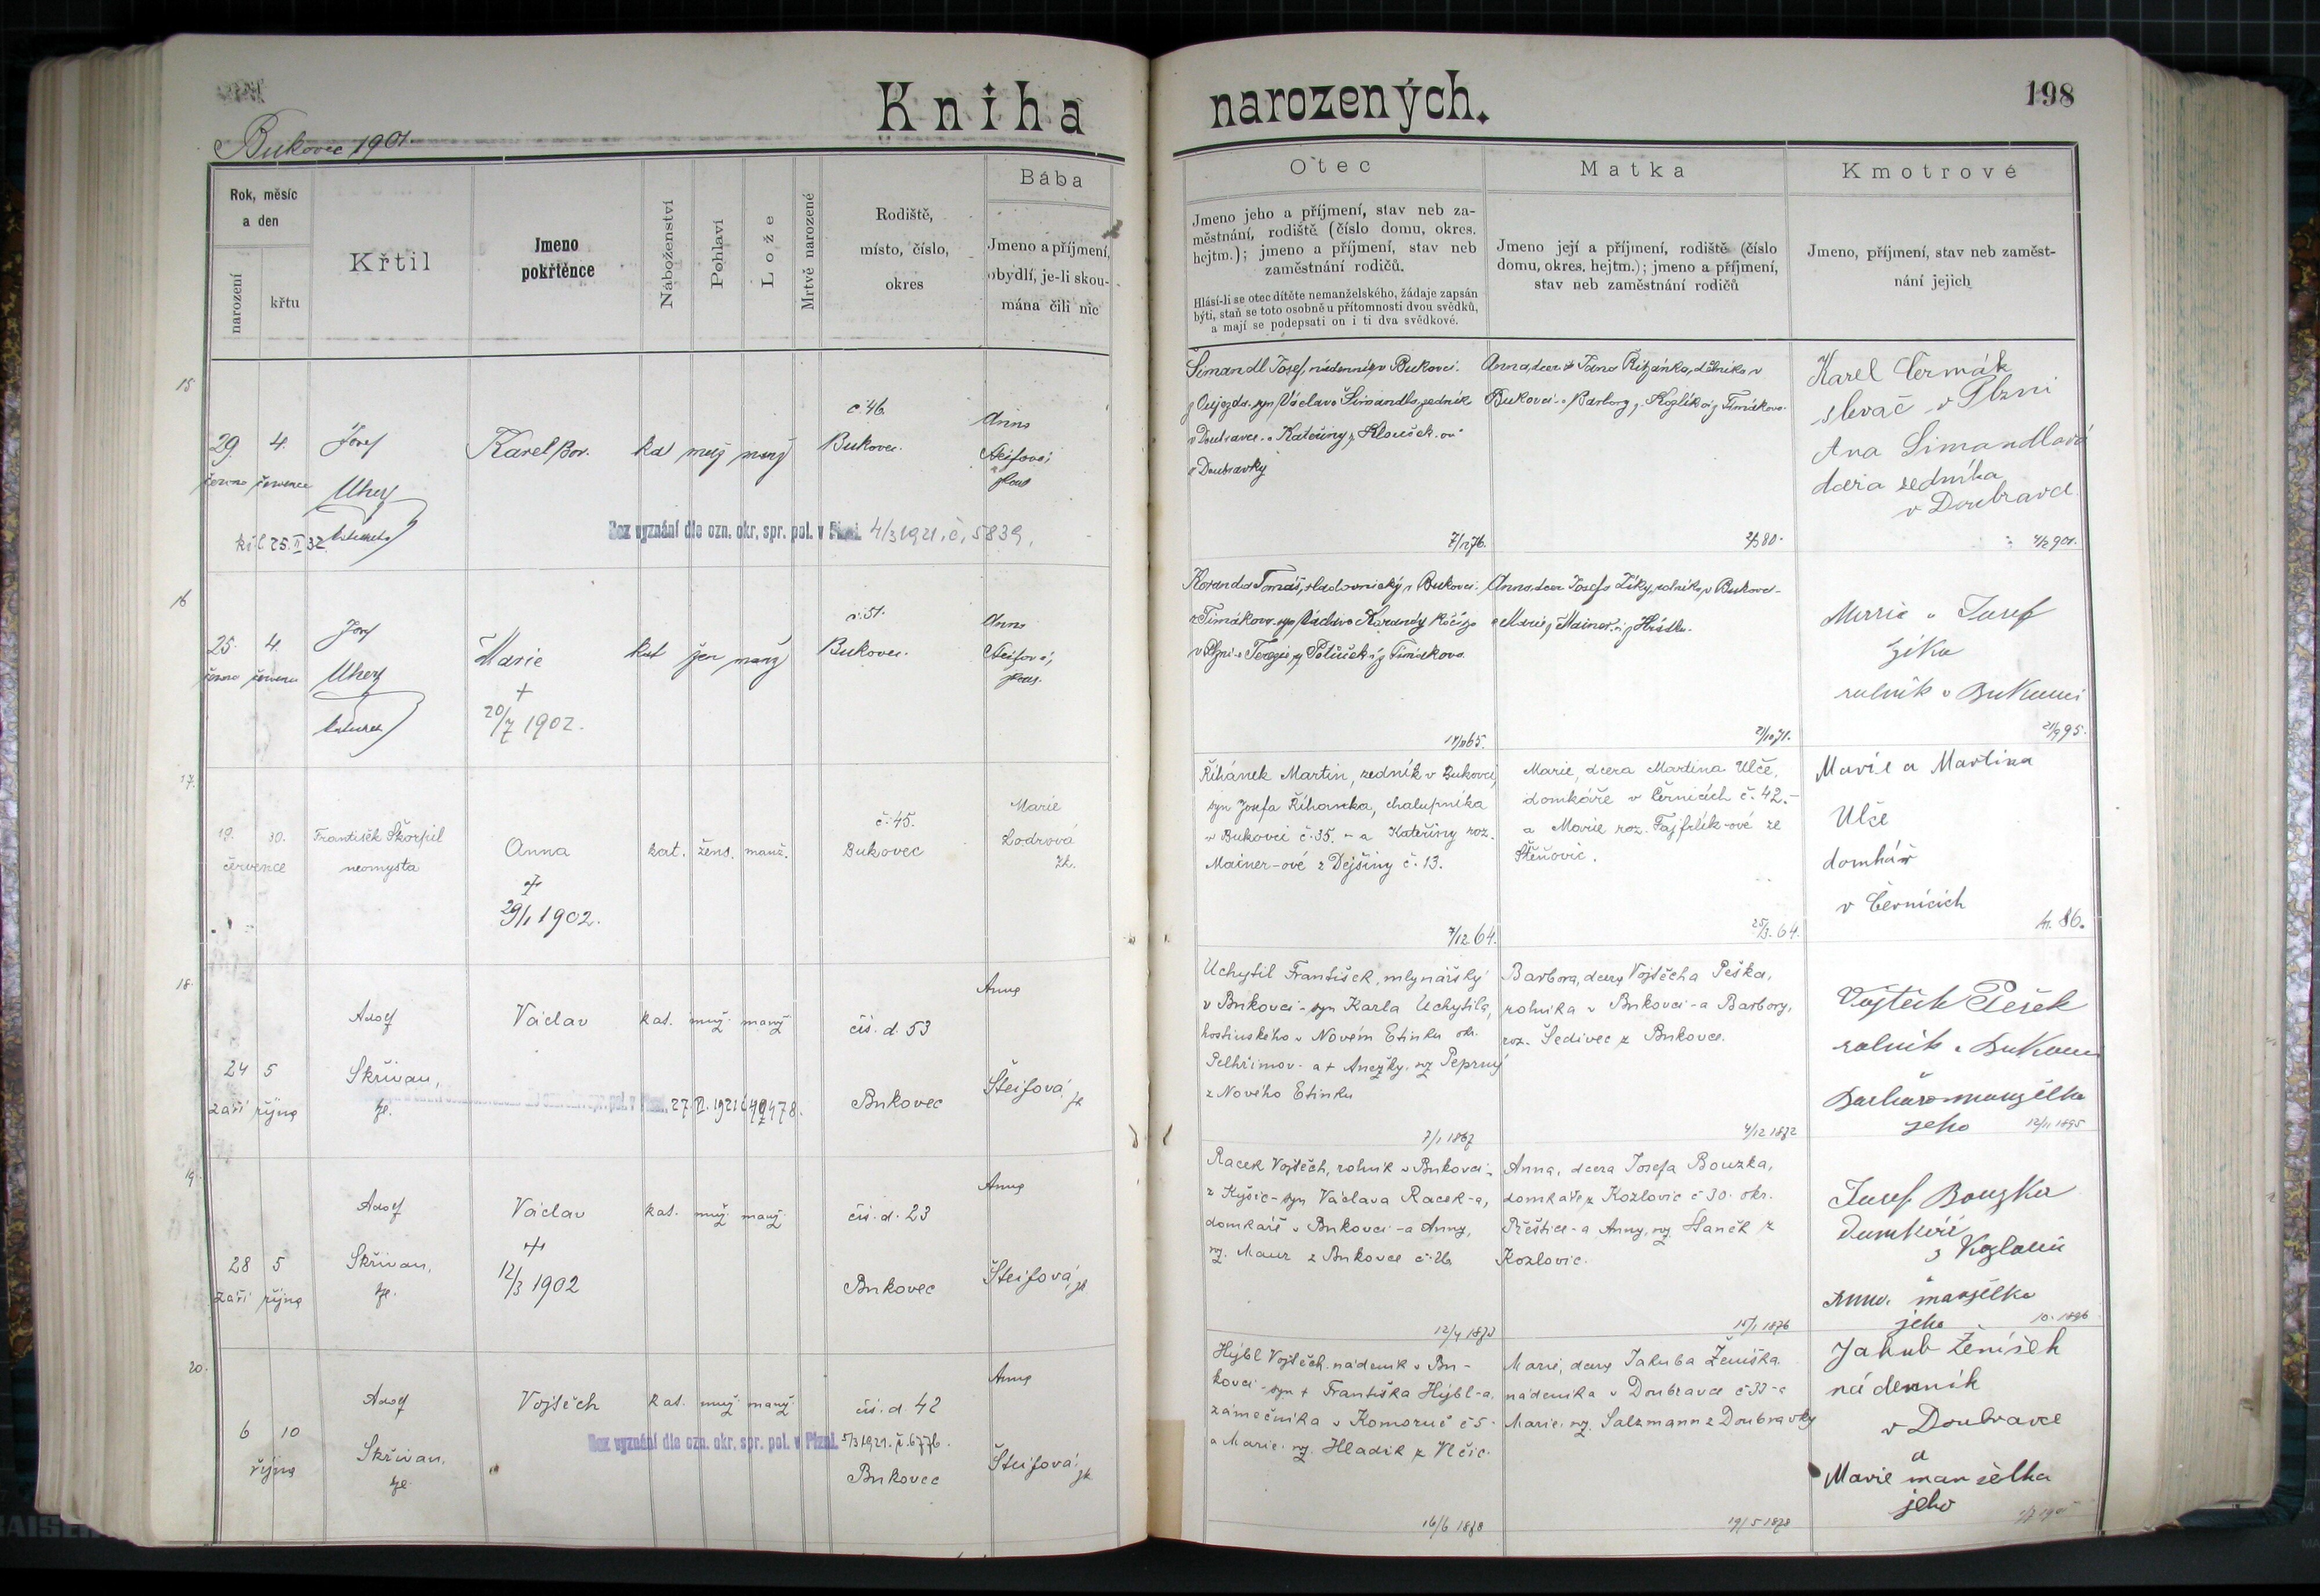 Kniha narozených.
198
Bukovec 1901.
Rok, měsíc
a den
narození
křtu
Křtil
Jmeno
pokřtěnce
Náboženství
Pohlaví
Lože
Mrtvě narozené
Rodiště,
místo, číslo,
okres
Bába
Jmeno a příjmení,
obydlí, je-li skou-
mána čili nic
Otec
Jmeno jeho a příjmení, stav neb za-
městnání, rodiště (číslo domu, okres.
hejtm.); jmeno a příjmení, stav neb
zaměstnání rodičů.
Hlásí-li se otec dítěte nemanželského, žádaje zapsán
býti, staň se toto osobně u přítomnosti dvou svědků,
a mají se podepsati on i ti dva svědkové.
Matka
Jmeno její a příjmení, rodiště (číslo
domu, okres. hejtm.); jmeno a příjmení,
stav neb zaměstnání rodičů
Kmotrové
Jmeno, příjmení, stav neb zaměst-
nání jejich
15
29 4.
června července
Josef
Uherz
Karel Bor.
kat muž manž
č 46
Bukovec.
Anna
Bez vyznání dle ozn. okr. spr. pol. v Plzni. 4/3 1921, č. 5839.
Šimandl Josef, nádenník v Bukovci.
syn Václava Šimandla, zedník
v Doubravce. a Kateřiny
z Doubravky
Anna, dcer
Bukovci. a Barbory
Karel Čermák
slevač v Plzni
Ana Simandlová
dcera zedníka
v Doubravce
16
25. 4.
června července
Josef
Uherz
Marie
+
20/7 1902.
kat žen manž
č. 51.
Bukovec.
Anna
Koranda Tomáš, v Bukovci.
z Timákova. syn Václava Korandy
Anna, dcer Josefa Zíky, rolníka, v Bukovci
Marie a Josef
Zíka
rolník v Bukovci
21/9 95.
17.
19. 30.
července
František Škorpil
neomysta
Anna
+
29/1 1902.
kat. žens. manž.
č. 45.
Bukovec
Marie
Lodrová
zk.
Řihánek Martin, zedník v Bukovci,
syn Josefa Řihanka, chalupníka
v Bukovci č. 35. - a Kateřiny roz.
Mainer-ové z Dejšiny č. 13.
7/12. 64.
Marie, dcera Martina Ulče,
domkáře v Černicích č. 42.-
a Marie roz. Fajfrlík-ové ze
Štěňovic.
25/3. 64.
Marie a Martina
Ulče
domkář
v Černicích
86.
18.
24 5
září října
Adolf
Skřivan,
Václav
kat. muž. manž.
čís. d. 53
Bukovec
Anna
Šteifová
27. 1921
Uchytil František, mlynářský
v Bukovci - syn Karla Uchytila,
hostinského v Novém Etinku okr.
Pelhřimov - a + Anežky, roz. Peprný
z Nového Etinku
7/1 1867
Barbora, dcera Vojtěcha Peška,
rolníka v Bukovci - a Barbory,
roz. Šedivec z Bukovce.
4/12 1872
Vojtěch Pešek
rolník v Bukovci
manželka
jeho
12/11 1895
19.
28 5
září října
Adolf
Skřivan,
Václav
+
12/3 1902
kat. muž. manž.
čís. d. 23
Bukovec
Anna
Šteifová,
Racek Vojtěch, rolník v Bukovci -
z Kyšic - syn Václava Racek-a,
domkáře v Bukovci - a Anny,
roz. Maur z Bukovce č. 26
Anna, dcera Josefa Bouzka,
domkáře z Kozlovic č 30. okr.
Přeštice - a Anny, roz. Haněk z
Kozlovic.
15/1 1876
Josef Bouzka
Domkář
z Kozlovic
Anna manželka
jeho
20.
6 10
října
Adolf
Skřivan,
Vojtěch
kat. muž. manž.
čís. d. 42
Bukovec
Anna
Šteifová,
Bez vyznání dle ozn. okr. spr. pol. v Plzni. 5/3 1921. č. 6776.
Hýbl Vojtěch. nádeník v Bu-
kovci - syn + Františka Hýbl-a,
zámečníka v Komoruč č 5 -
a Marie, roz. Hladík z Vlčic.
16/6 1878
Marie, dcera Jakuba Ženíška
nádeníka v Doubravce č 33 - a
Marie, roz. Salzmann z Doubravky
19/5 1878
Jakub Ženíšek
nádenník
v Doubravce
a
Marie manželka
jeho